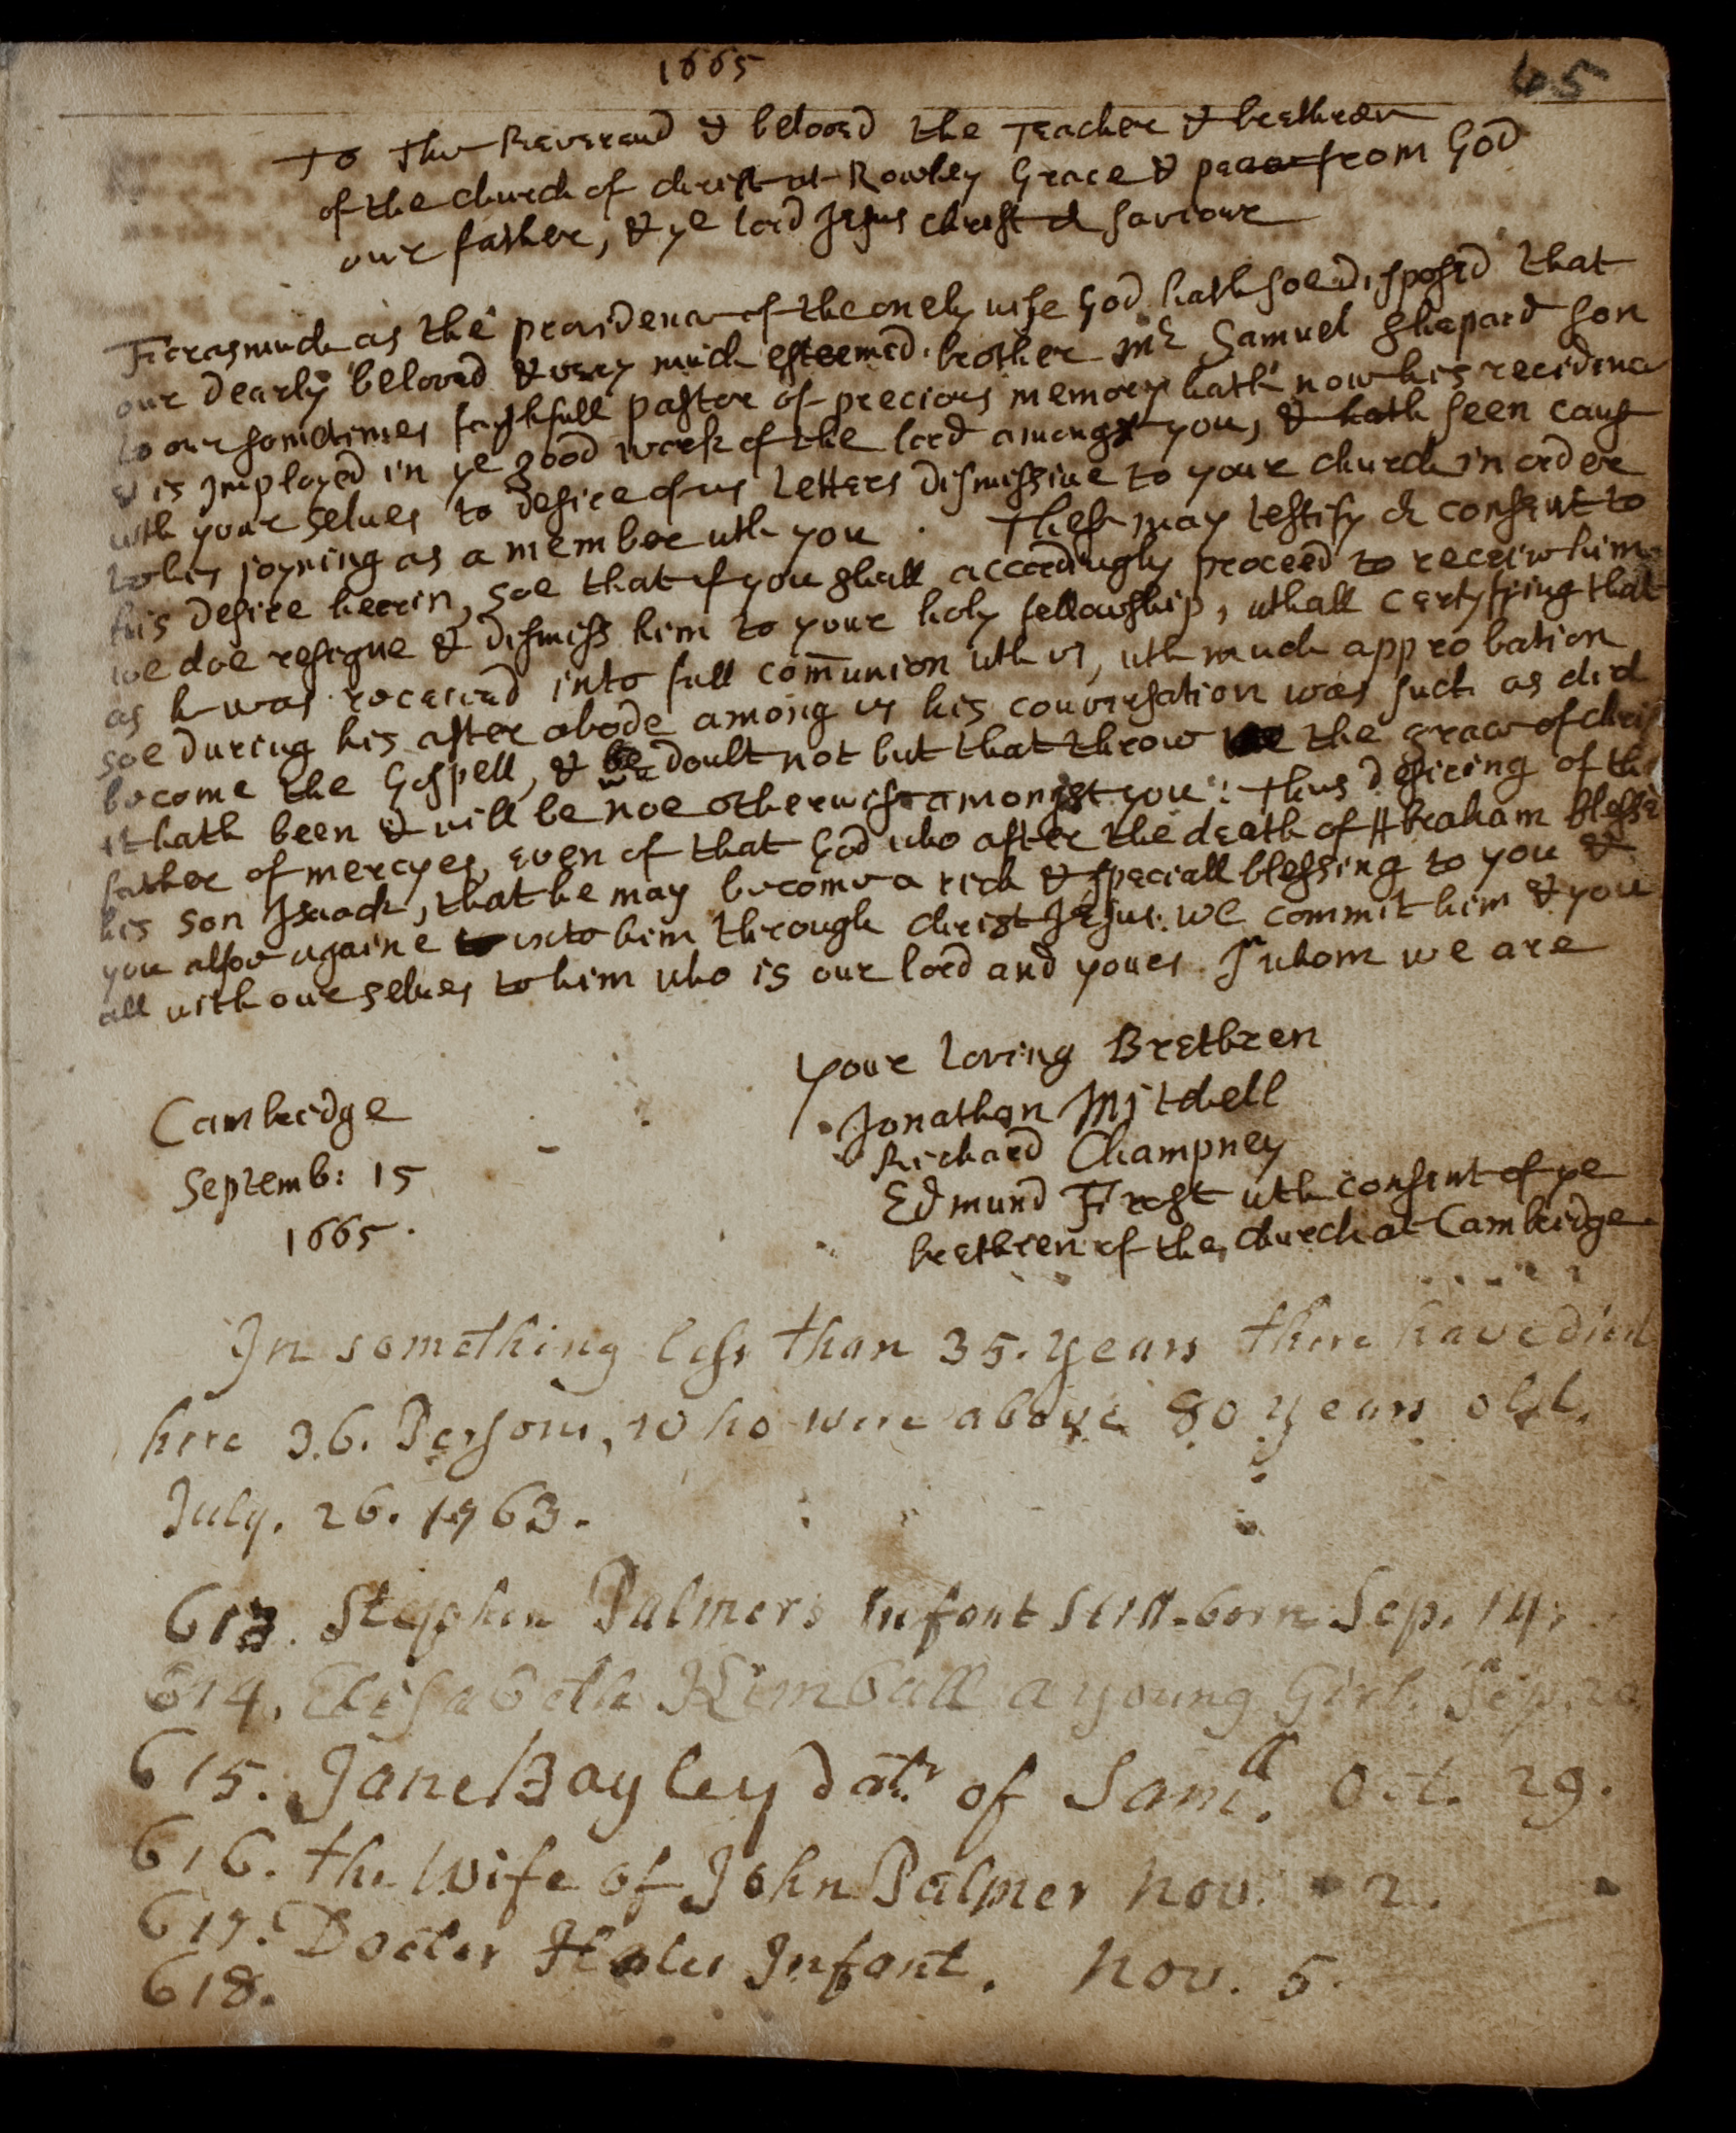 1665
65
To The Reverend & beloved the Teacher & brethren
of the church of christ at Rowley Grace & peace from God
our father, & ye lord Jesus christ or saviour
Fforasmuch as the providence of the onely wise God hath soe disposed that
our dearly beloved & very much esteemed brother mr Samuel Shepard son
to our sometimes faythfull pastor of precious memory hath now his recidence
& is Imployed in ye good work of the lord amongst you, & hath seen caus
with your selves to desire of us letters dismissive to your church in order
to his joyning as a member wth you . These may testify or consent to
his desire herein, soe that if you shall accordingly proceed to receive him
we doe resigne & dismiss him to your holy fellowship, wthall certyfying that
as he was received into full communion wth us, wth much approbation
soe during his after abode among us his conversation was such as did
become the Gospell, & we doubt not but that throw the grace of christ
it hath been & will be noe otherwise amongst you: thus desiring of the
father of mercyes, even of that God who after the death of Abraham blessed
his son Isaack, that he may become a rich & speciall blessing to you &
you allsoe againe unto him through christ Jesus. we commit him & you
all with our selves to him who is our lord and yours In whom we are
your loving Brethren
Cambridge
Septemb: 15
1665.
Jonathan Mitchell
Richard Champney
Edmund Frost wth consent of ye
brethren of the church at Cambridge
In something less than 35. years there have died
here 36. Persons, who were above 80 years old.
July. 26. 1763.
613. Stephen Palmers Infant Still-born Sep. 14.
614. Elisabeth Kimball a young Girl. Sep. 20
615. Jane Bayley datr. of Samll. Oct. 29.
616. the Wife of John Palmer Nov. 2.
617. Docter Hales Infant. Nov. 5.
618.